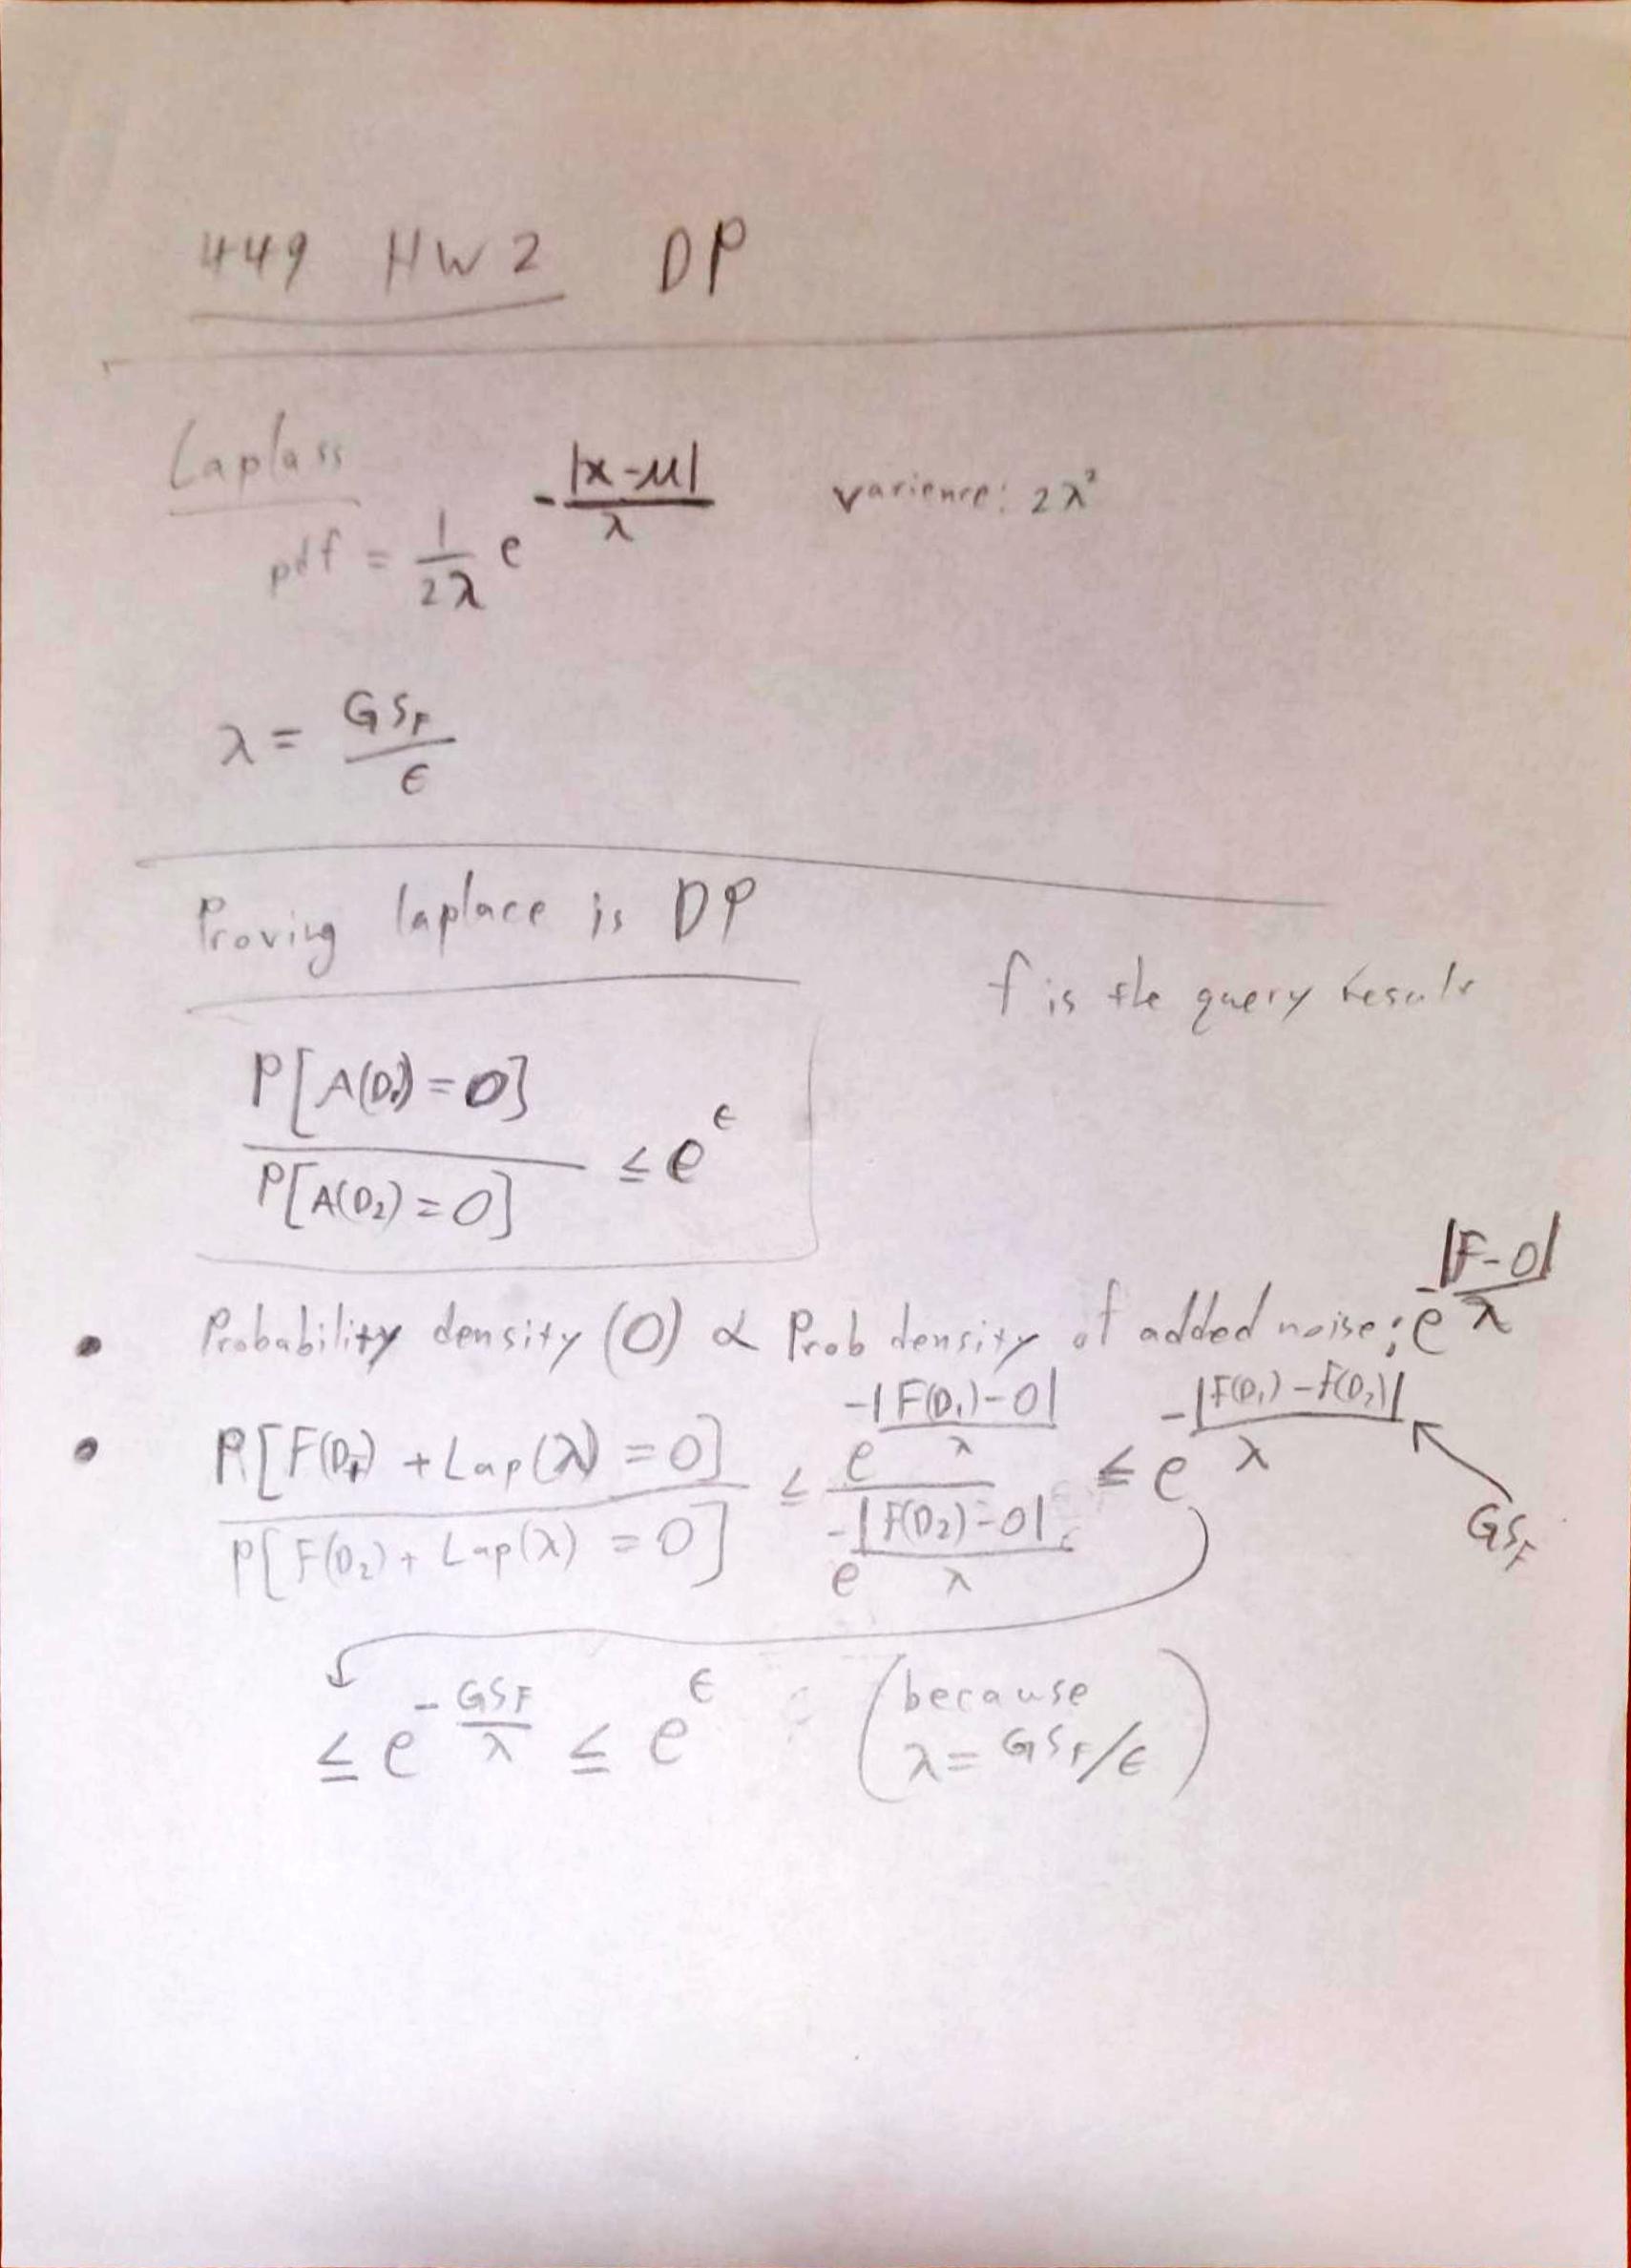 449 HW2 DP
Laplass
pdf = 1/(2λ) e^(-|x-μ|/λ) varience: 2λ²
λ = GS_F/ε
Proving laplace is DP
f is the query result
P[A(D₁)=O] / P[A(D₂)=O] ≤ e^ε
• Probability density (O) ∝ Prob density of added noise: e^(-|F-O|/λ)
• P[F(D₁) + Lap(λ) = O] / P[F(D₂) + Lap(λ) = O] ≤ e^(-|F(D₁)-O|/λ) / e^(-|F(D₂)-O|/λ) ≤ e^(-|F(D₁)-f(D₂)|/λ)
GS_F
≤ e^(-GS_F/λ) ≤ e^ε (because
λ = GS_F/ε)